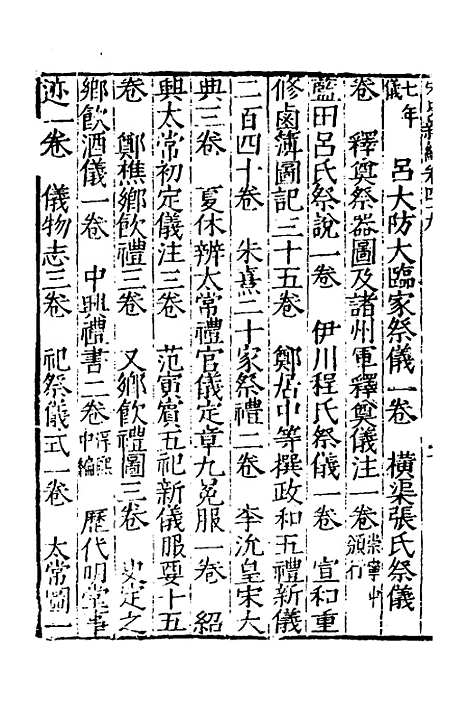 儀七年　呂大防大臨家祭儀一卷　橫渠張氏祭儀一
卷　釋奠祭器圖及諸州軍釋奠儀注一卷崇寧中頒行
藍田呂氏祭說一卷　伊川程氏祭儀一卷　宣和重
修鹵簿圖記三十五卷　鄭居中等撰政和五禮新儀
二百四十卷　朱熹二十家祭禮二卷　李沇皇宋大
典三卷　夏休辨太常禮官儀定章九冕服一卷　紹
興太常初定儀注三卷　范寅賓五祀新儀服要十五
卷　鄭樵鄉飲禮三卷　又鄉飲禮圖三卷　史定之
鄉飲酒儀一卷　中興禮書二卷淳熙中編　歷代明堂事
迹一卷　儀物志三卷　祀祭儀式一卷　太常圖一